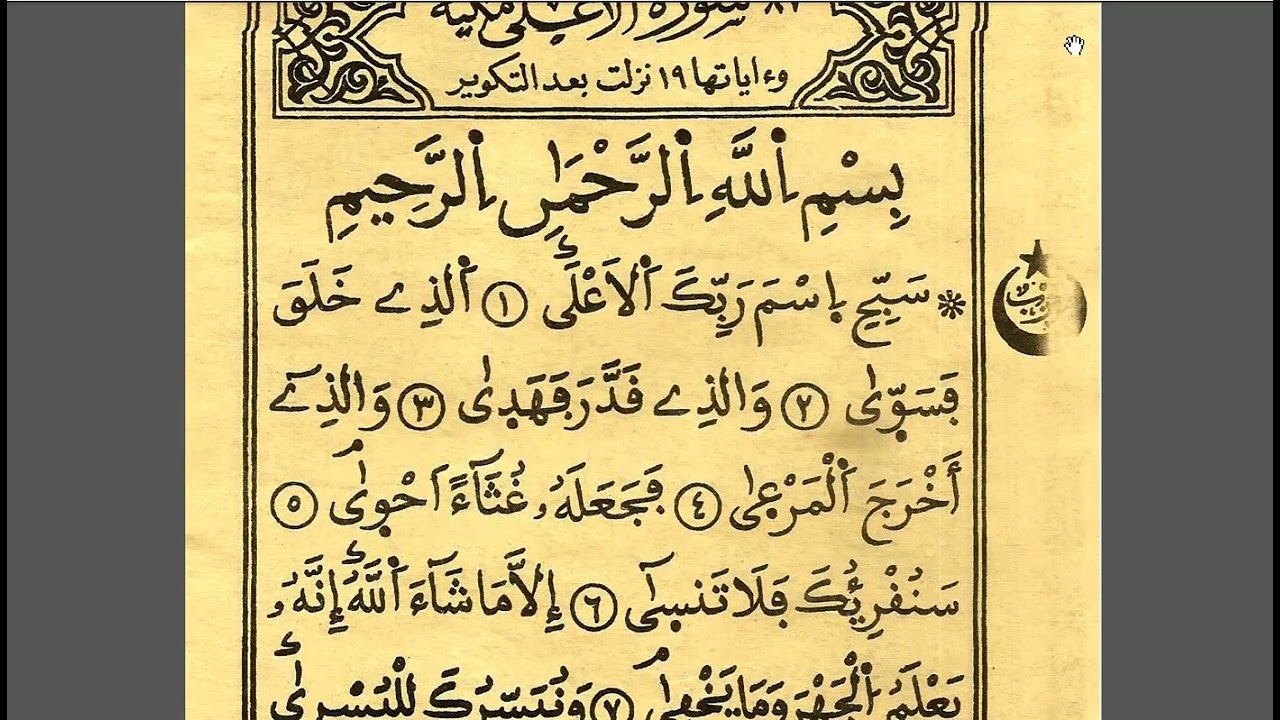 ٨٧ سورة الأعلى مكية
وءاياتها ١٩ نزلت بعد التكوير
بِسْمِ اِ۬للَّهِ اِ۬لرَّحْمَٰنِ اِ۬لرَّحِيمِ
۞ سَبِّحِ اِ۪سْمَ رَبِّكَ اَ۬لَاعْلَى ١ اَ۬لذِے خَلَقَ
فَسَوّ۪ىٰ ٢ وَالذِے قَدَّرَ فَهَد۪ىٰ ٣ وَالذِےٓ
أَخْرَجَ اَ۬لْمَرْع۪ىٰ ٤ فَجَعَلَهُۥ غُثَآءً اَحْو۪ىٰ ٥
سَنُقْرِئُكَ فَلَا تَنس۪ىٰٓ ٦ إِلَّا مَا شَآءَ اَ۬للَّهُ إِنَّهُۥ
يَعْلَمُ اُ۬لْجَهْرَ وَمَا يَخْف۪ىٰ ٧ وَنُيَسِّرُكَ لِلْيُسْر۪ىٰ